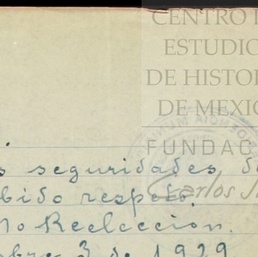 CENTRO
ESTUDIO
DE HISTO
DE MEXIC
FUNDAC
seguridades
bido respeto.
No Reeleccion.
bre 3 de 1929